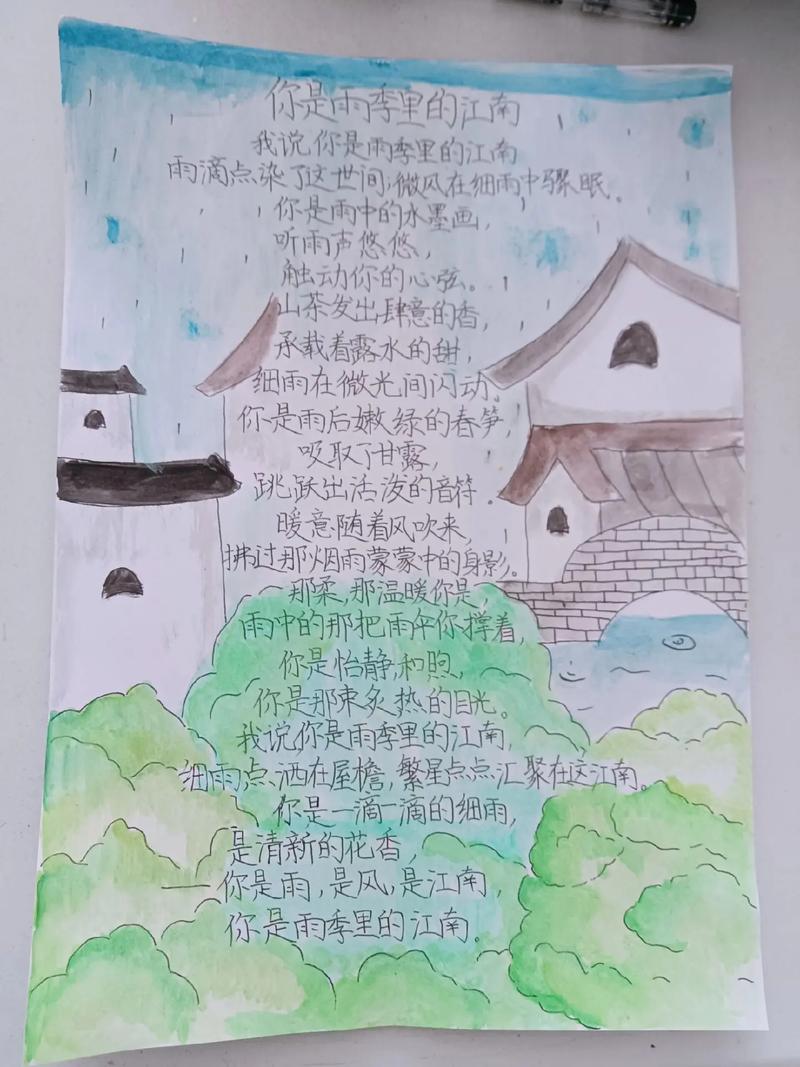 你是雨季里的江南
我说,你是雨季里的江南
雨滴点染了这世间,微风在细雨中骤眠。
你是雨中的水墨画,
听雨声悠悠,
触动你的心弦。
山茶发出肆意的香,
承载着露水的甜,
细雨在微光间闪动。
你是雨后嫩绿的春笋,
吸取了甘露,
跳跃出活泼的音符。
暖意随着风吹来,
拂过那烟雨蒙蒙中的身影。
那柔,那温暖你是,
雨中的那把雨伞你撑着,
你是怡静,和煦,
你是那束炙热的目光。
我说你是雨季里的江南,
细雨点洒在屋檐,繁星点点汇聚在这江南。
你是一滴一滴的细雨,
是清新的花香,
——你是雨,是风,是江南,
你是雨季里的江南。